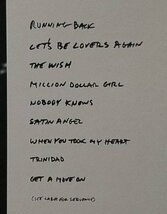 RUNNING BACK
LET'S BE LOVERS AGAIN
THE WISH
MILLION DOLLAR GIRL
NOBODY KNOWS
SATIN ANGEL
WHEN YOU TOOK MY HEART
TRINIDAD
GET A MOVE ON
(SEE LASH FOR SESSIONS)